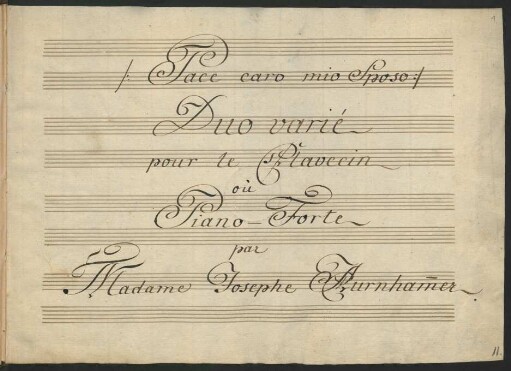 /: Pace caro mio Sposo :/
Duo varié
pour le Clavecin
où
Piano-Forte
par
Madame Josephe Aurnham̄er
11.